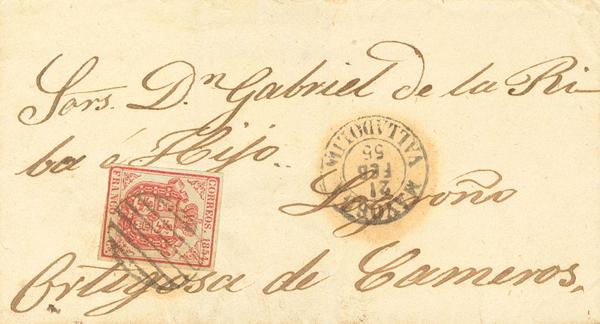 Sors. Dn Gabriel de la Ri-
ba é Hijo.
Logroño
Ortigosa de Cameros.
CORREOS. 1854
FRANCO
21
FEB
55
VALLADOLID